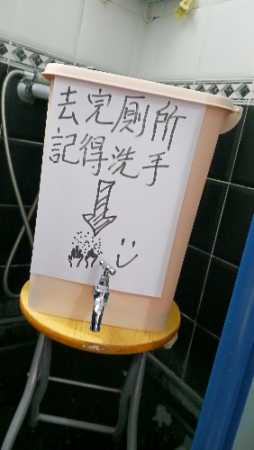 去完厠所
記得洗手